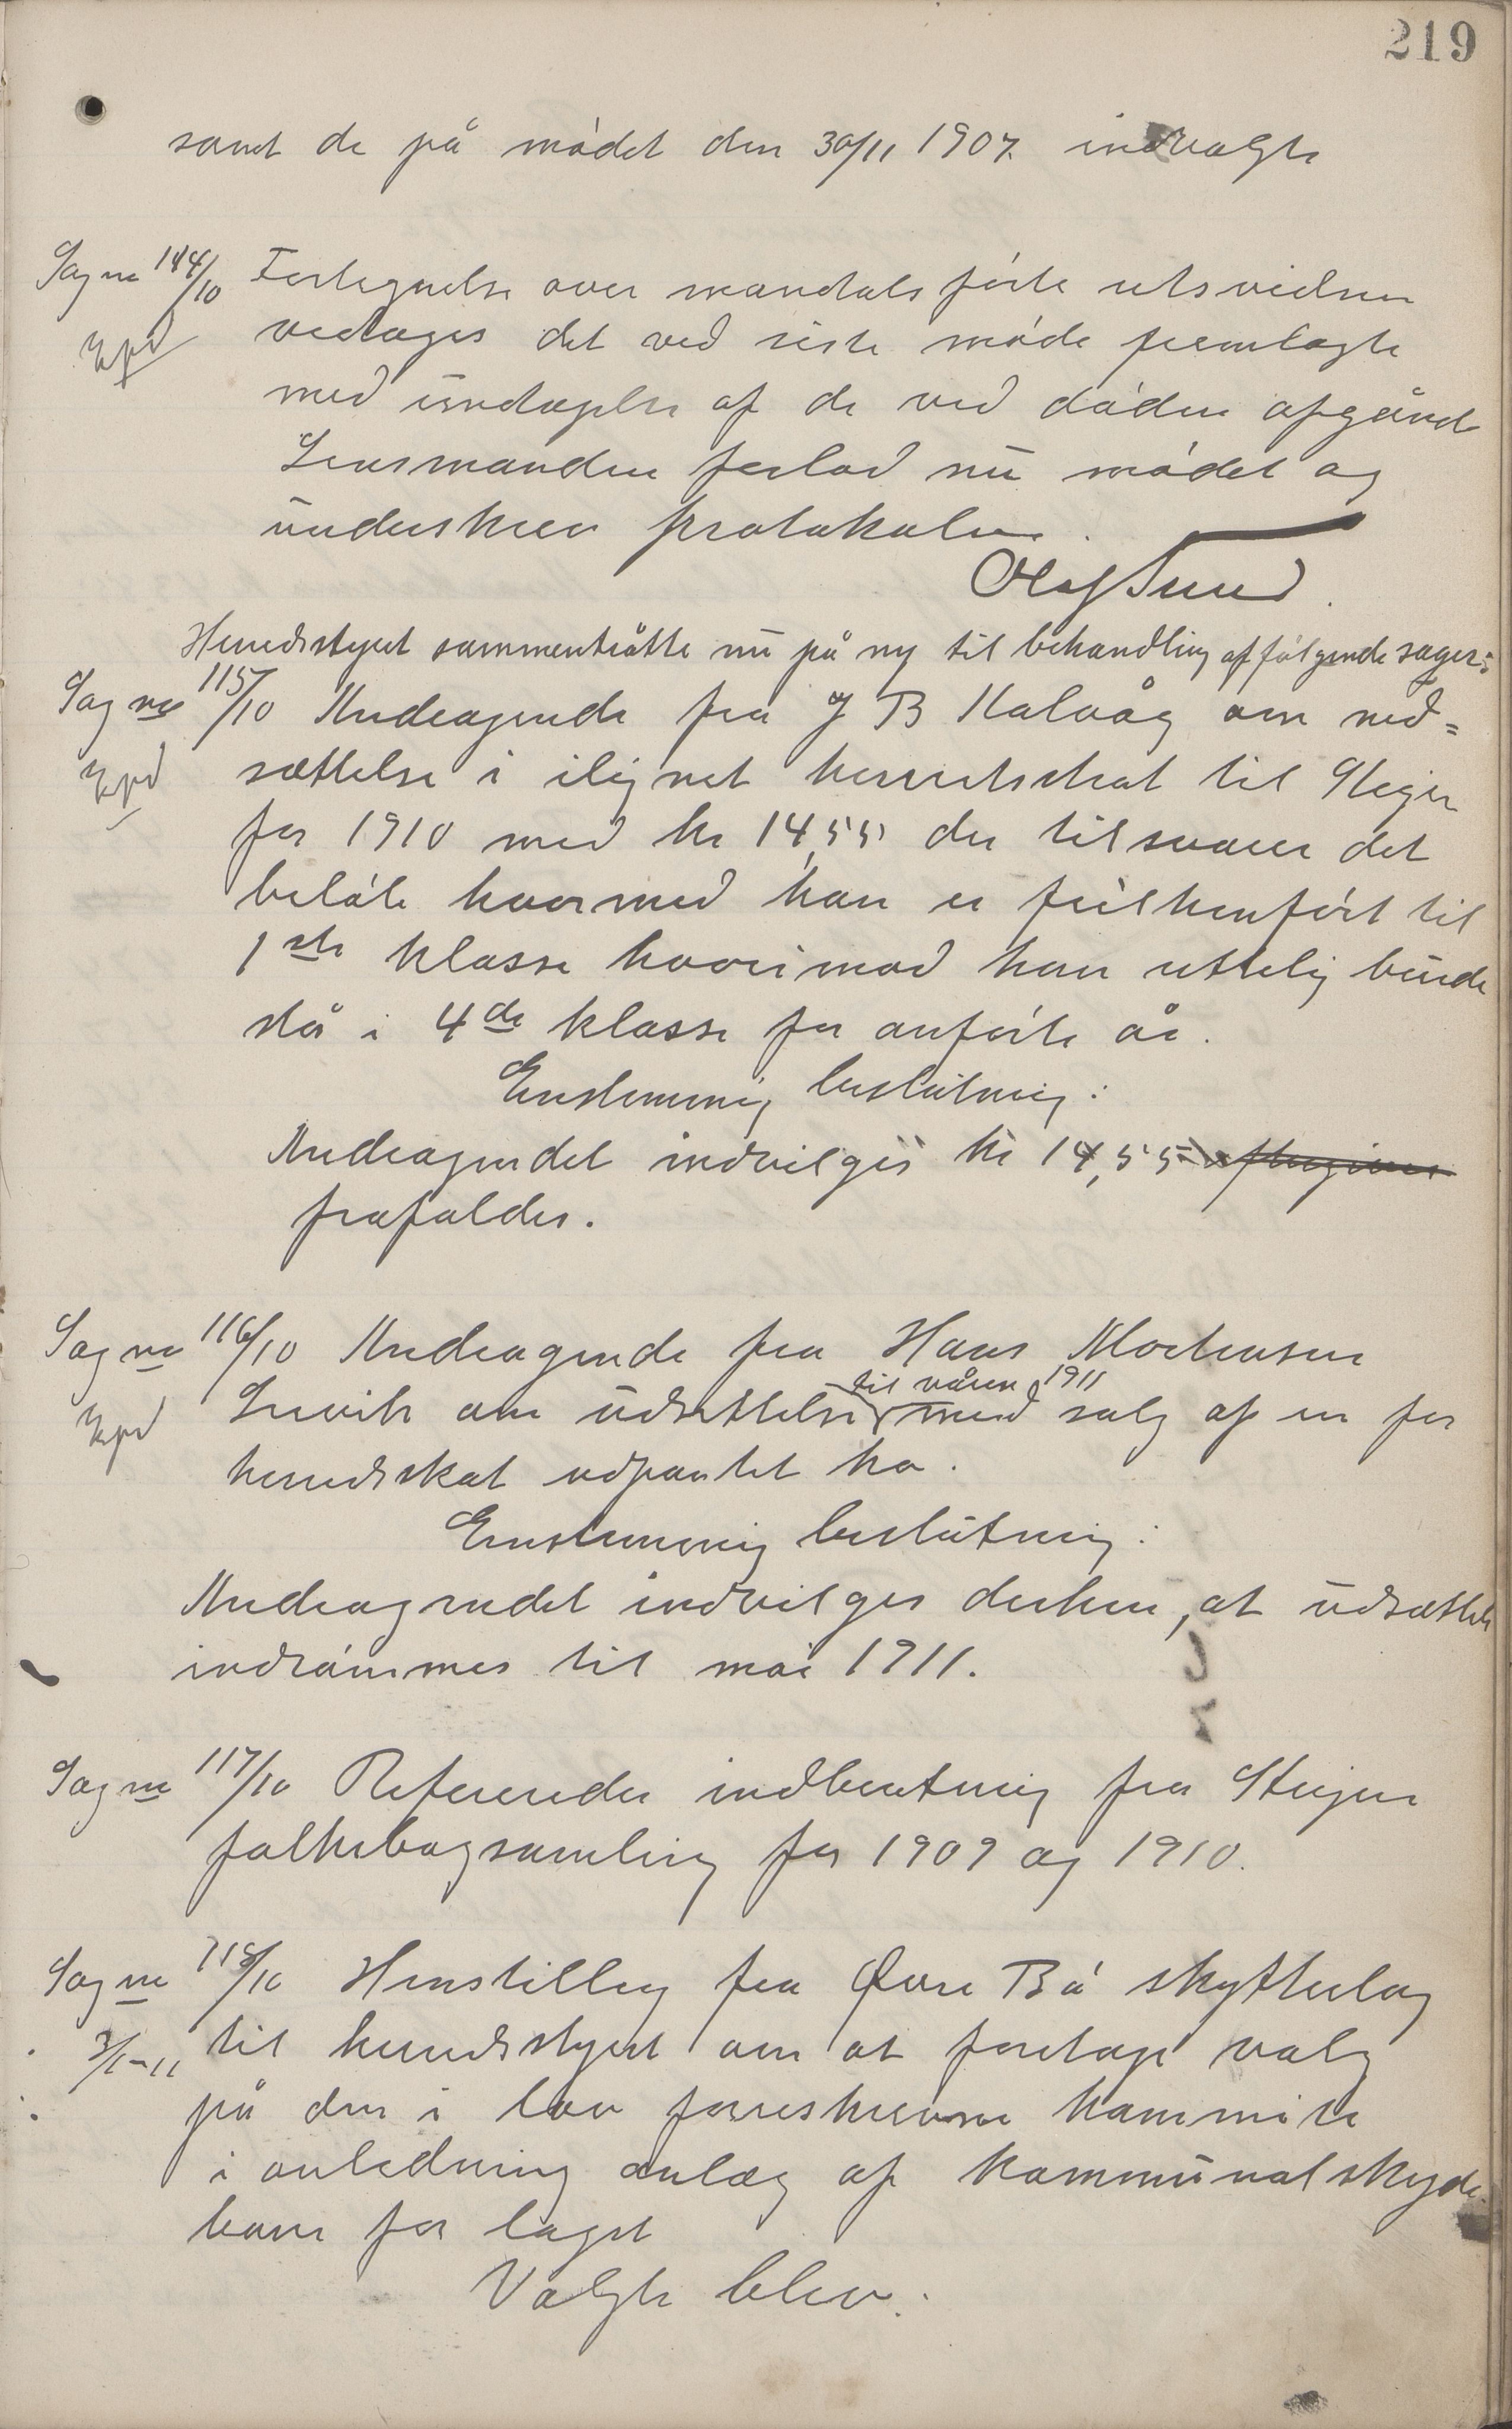 219
samt de på mødet den 30/11 1907. indvalgte
Sag no 114/10 Fortegnelse over mandtalsførte utsvidsen
Exp vedtages det ved siste møde fremlagte
med undtagelse af de ved døden afgåend
Lensmanden forlod nu mødet og
underskrev protokolen.
Olaf Sund.
Herredsstyret sammentråtte nu på ny til behandling af følgende sager:
Sag no 115/10 Andragende fra J B Kalvåg om ned=
Exp sættelse i ilignet herredsskat til Steigen
for 1910 med kr 14,55 der tilsvarer det
beløb hvormed han er feilhenført til
1ste klasse hvorimod han rettelig burde
stå i 4de klasse for anførte år.
Enstemmig beslutning:
Andragendet indvilges kr 14,55
frafaldes.
Sag no 116/10 Andragende fra Hans Mortensen
til våren 1911
Exp Lervik om udsættelse med salg af en for
herredsskat udpantet ko.
Enstemmig beslutning:
Andragendet indvilges derhen, at udsættelse
indrømmes til mai 1911.
Sag no 117/10 Referender indberetning fra Steigen
folkebogsamling for 1909 og 1910.
Sag no 118/10 Henstilling fra Øvre Bø skytterlag
3/1-11 til herredsstyret om at foretage valg
på den i lov foreskrevne kommite
i anledning anlæg af kommunal skyde
bane for laget
Valgte blev: